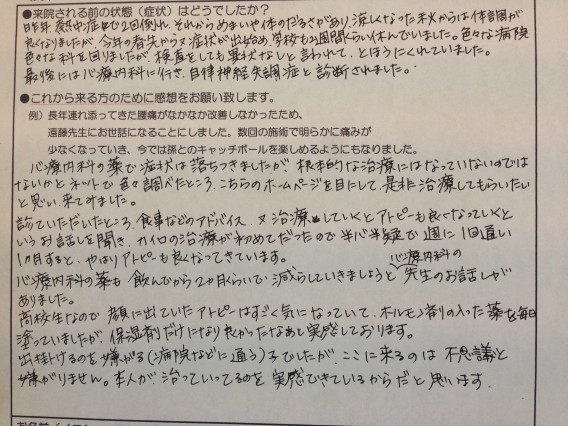 ●来院される前の状態（症状）はどうでしたか？
昨年熱中症で2回倒れ、それからめまいや体のだるさがあり、涼しくなった秋からは体調が
良くなりましたが、今年の春先から又症状が出始め、学校も2週間くらい休んでいました。色々な病院
色々な科を回りましたが、検査をしても異状ないと言われて、とほうにくれていました。
最後には心療内科に行き、自律神経失調症と診断されました。
●これから来る方のために感想をお願い致します。
例）長年連れ添ってきた腰痛がなかなか改善しなかったため、
遠藤先生にお世話になることにしました。数回の施術で明らかに痛みが
少なくなっていき、今では孫とのキャッチボールを楽しめるようにもなりました。
心療内科の薬で症状は落ちつきましたが、根本的な治療にはなっていないのでは
ないかとネットで色々調べたところ、こちらのホームページを目にして、是非治療してもらいたい
と思い、来てみました。
診ていただいたところ、食事などのアドバイス、又治療していくとアトピーも良くなっていくと
いうお話しを聞き、カイロの治療が初めてだったので半パ半疑で週に1回通い
1ヵ月すると、やはりアトピーも良くなってきています。
心療内科の薬も飲んでから2ヵ月くらいで、減らしていきましょうと心療内科の先生のお話しが
ありました。
高校生なので顔に出ていたアトピーはすごく気になっていて、ホルモン剤の入った薬を毎日
塗っていましたが、保湿剤だけになり良かったなあと実感しております。
出掛けるのを嫌がる（病院などに通う）子でしたが、ここに来るのは不思議と
嫌がりません。本人が治っていってるのを実感できているからだと思います。